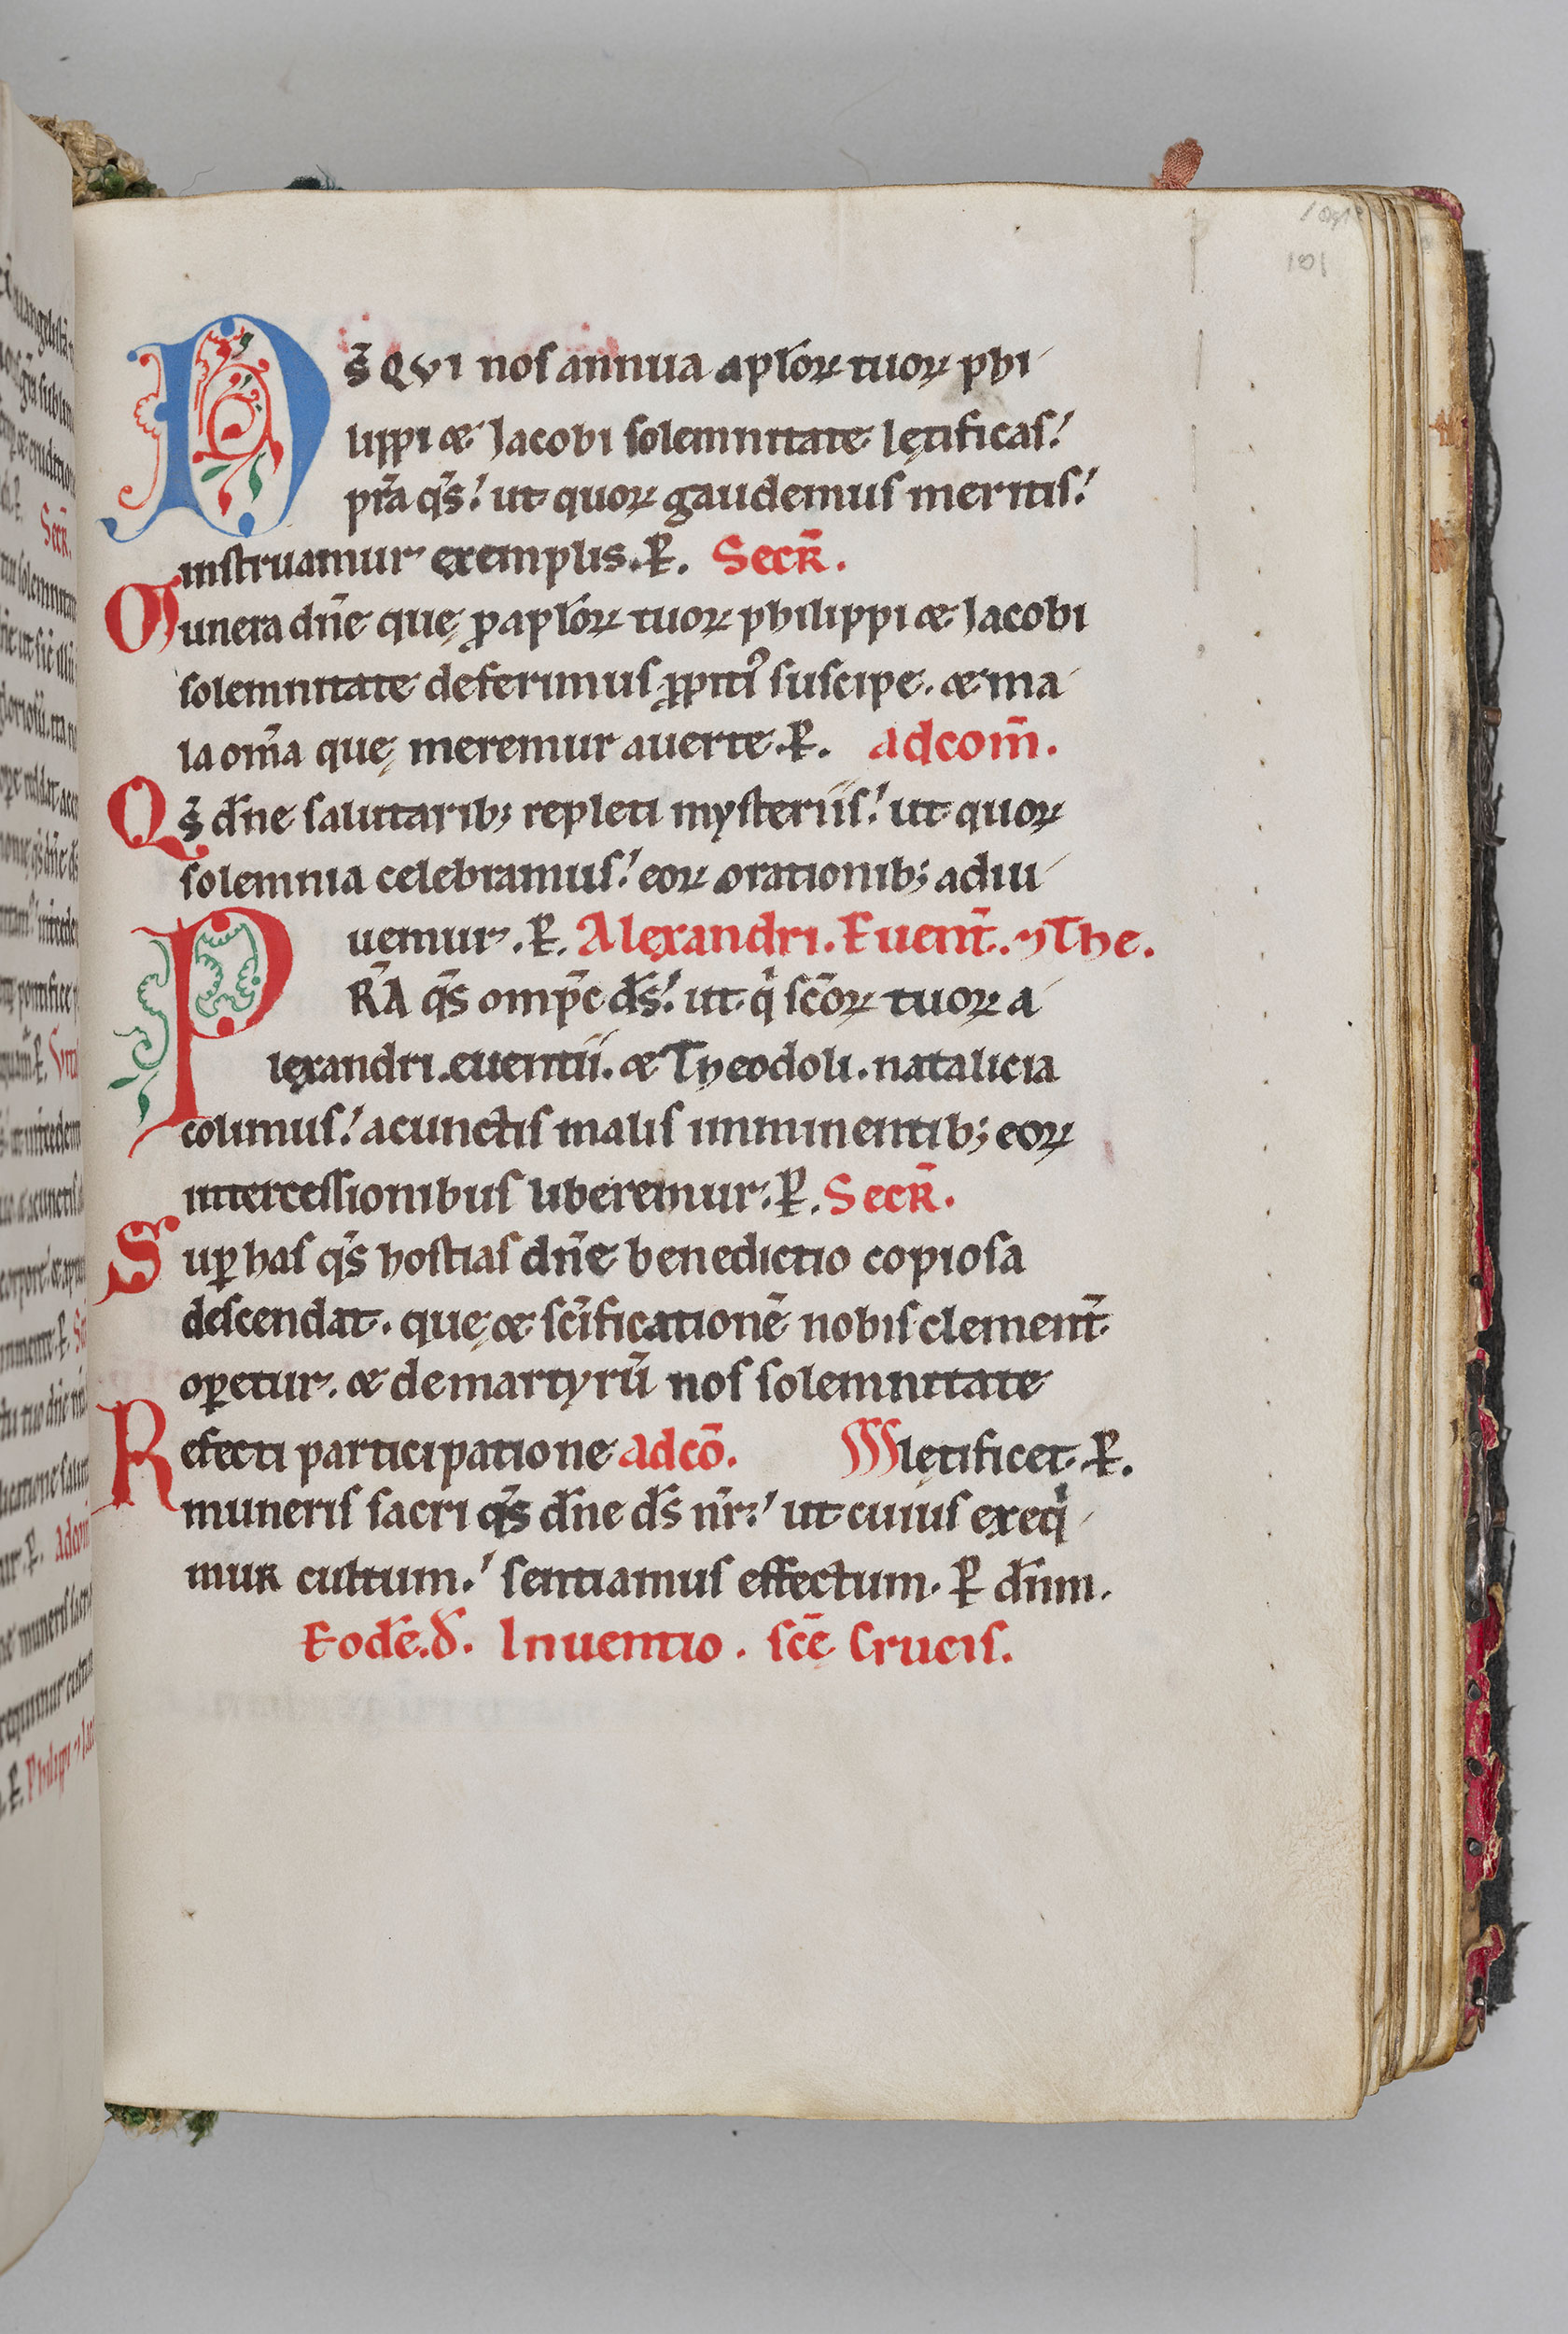 101
Ds̄ QVI nos annua aplōꝝ tuoꝝ phi
lippi & Jacobi solemnitate lętificas!
pr̄a qs̄! ut quoꝝ gaudemus meritis!
instruamur exemplis. P̱. Secr̄.
Munera dn̄e quę ꝓ aplōꝝ tuoꝝ philippi & Jacobi
solemnitate deferimus ꝓpitiꝰ suscipe. & ma
la om̄a quę meremur auerte. P̱. adcom̄.
Qs̄ dn̄e salutarib; repleti mysteriis! ut quoꝝ
solemnia celebramus! eoꝝ orationib; adiu
uemur. P̱. Alexandri. Euent̄. ⁊ The.
PR̄A qs̄ omp̄c ds̄! ut qͥ sc̄oꝝ tuoꝝ a
lexandri. euentii. & Theodoli. natalicia
colimus! a cunctis malis imminentib; eoꝝ
intercessionibus liberemur. P̱. Secr̄.
Suꝑ has qs̄ hostias dn̄e benedictio copiosa
descendat. quę & sc̄ificationē nobis clement̄
oꝑetur. & de martyrū nos solemnitate
Refecti participatione adcō. lętificet. P̱.
muneris sacri qs̄ dn̄e ds̄ nr̄! ut cuius exeqͥ
mur cultum! sentiamus effectum. P̱ dn̄m.
Eodē. d̄. Inuentio. sc̄ę Crucis.